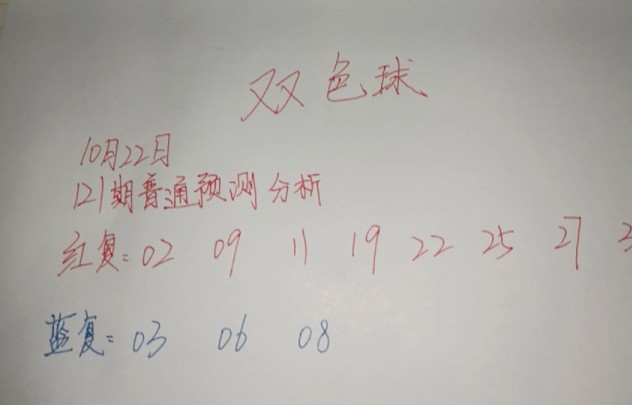 双色球
10月22日
121期普通预测分析
红复:02 09 11 19 22 25 27
蓝复:03 06 08